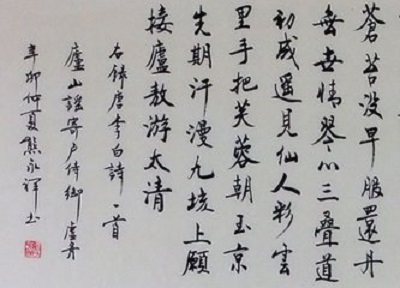 蒼苔沒早服還丹
無世情琴心三疊道
初成遙見仙人彩雲
里手把芙蓉朝玉京
先期汗漫九垓上願
接廬敖游太清
右錄唐李白詩一首
廬山謠寄卢侍御 虛舟
辛卯仲夏熊永祥书